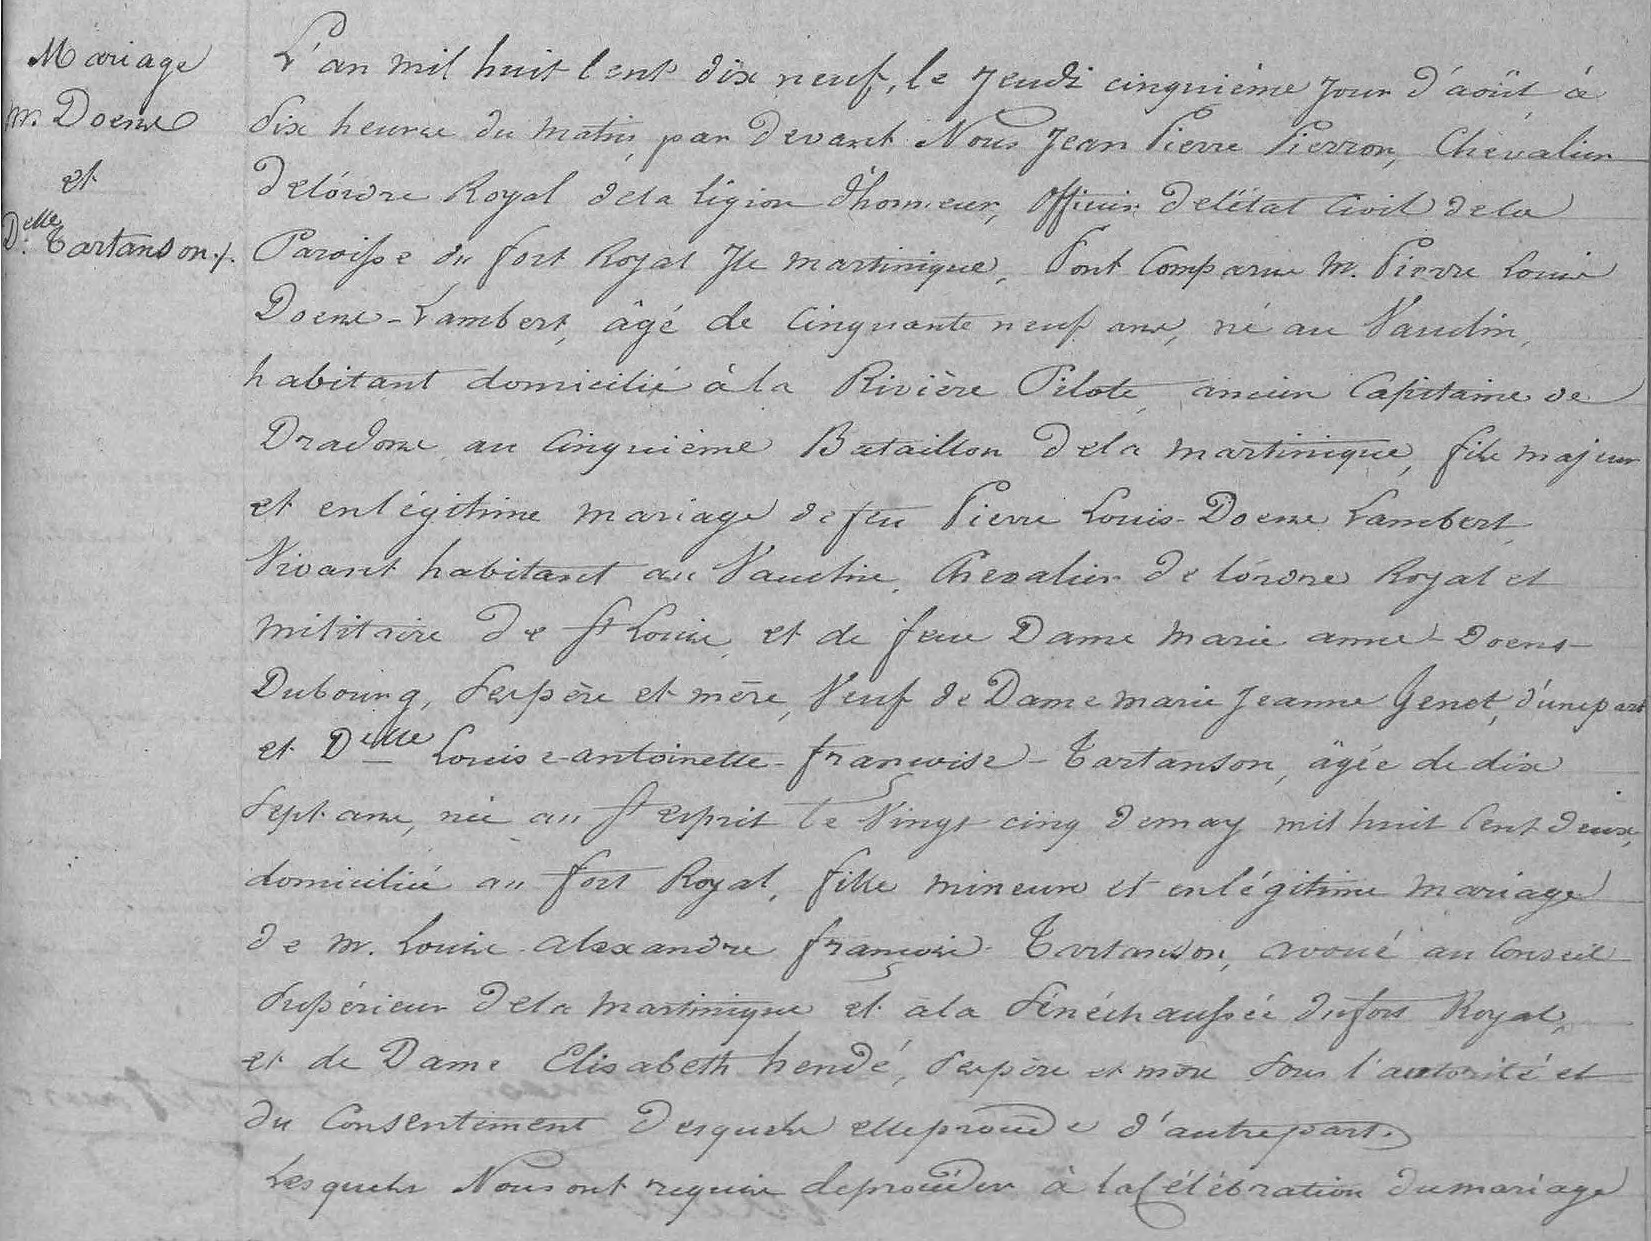 Mariage
M. Doens
et
Delle Tartanson./.
L'an mil huit Cent dix neuf, le Jeudi cinquième Jour d'août à
dix heures du matin, par devant Nous Jean Pierre Pierron, Chevalier
del'ordre Royal dela légion d'honneur, Officier del'état Civil dela
Paroisse du fort Royal Ile Martinique, Sont Comparus M. Pierre Louis
Doens-Lambert, âgé de Cinquante neuf ans, né au Vauclin,
habitant domicilié à la Rivière Pilote, ancien Capitaine de
Dradons au Cinquième Bataillon dela Martinique, fils majeur
et enlégitime mariage de feu Pierre Louis-Doens Lambert,
Vivant habitant au Vauclin, Chevalier de l'ordre Royal et
militaire de St Louis, et de feue Dame Marie anne-Doens-
Dubourg, Sespère et mère, Veuf de Dame Marie Jeanne Genet, d'unepart
et Delle Louise-antoinette-françoise-Tartanson, âgée de dix
Sept ans, née au St esprit le Vingt cinq demay mil huit Cent deux,
domiciliée au fort Royal, fille mineure et enlégitime mariage
de M. Louis-alexandre françois-Tartanson, avoué au Conseil
Supérieur dela Martinique et àla Sénéchaussée dufort Royal,
et de Dame Elisabeth hendé, Sespère et mère Sous l'autorité et
du Consentement desquels elleprocède d'autrepart.
Lesquels Nousont requis deprocéder à laCélébration dumariage